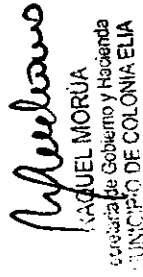 RAQUEL MORUA
Secretaria de Gobierno y Hacienda
MUNICIPIO DE COLONIA ELIA